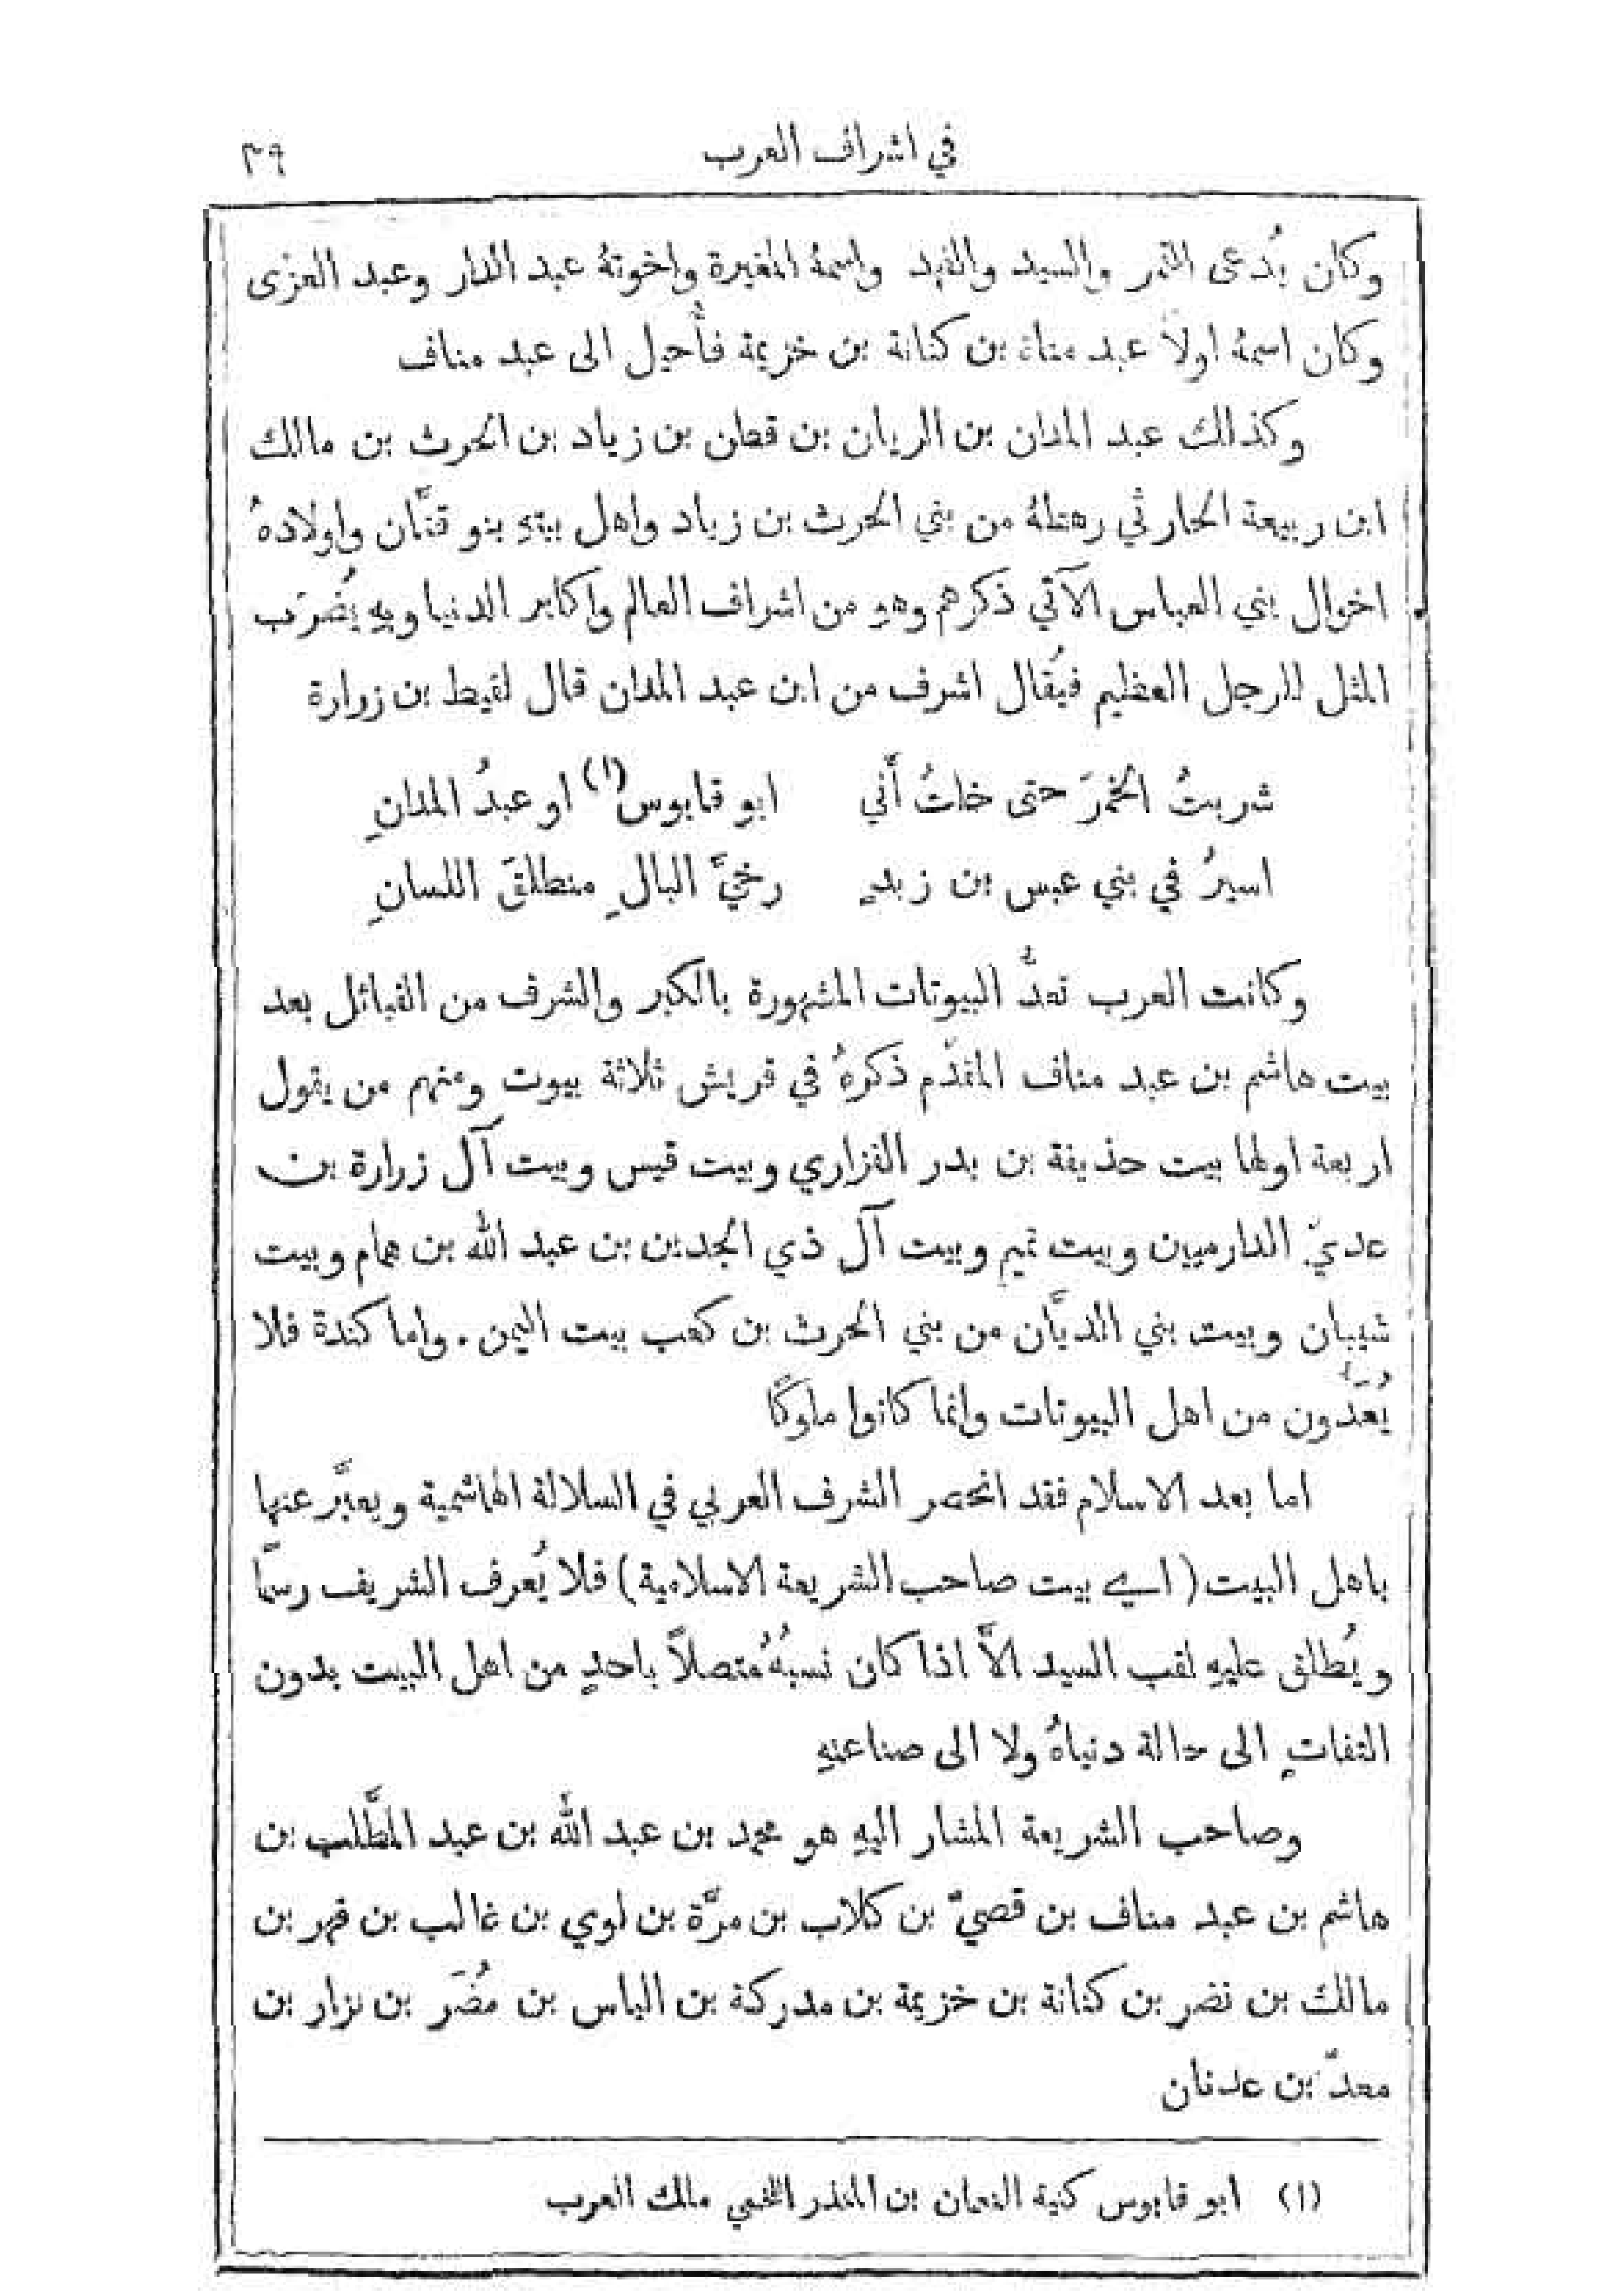 في اشراف العرب ٣٩
وكان يُدعى القمر والسيد والفهد واسمهُ المغيرة واخوتهُ عبد الدار وعبد العزى
وكان اسمهُ اولاً عبد مناة بن كنانة بن خزيمة فأُحيل الى عبد مناف
وكذلك عبد المدان بن الريان بن قطن بن زياد بن الحرث بن مالك
ابن ربيعة الحارثي رهطهُ من بني الحرث بن زياد واهل بيتهِ بنو قنَّان واولادهُ
اخوال بني العباس الآتي ذكرهم وهو من اشراف العالم واكابر الدنيا وبهِ يُضرَب
المثل للرجل العظيم فيُقال اشرف من ابن عبد المدان قال لقيط بن زرارة
شربتُ الخمرَ حتى خلتُ أَني ابو قابوس(١) او عبدُ المدانِ
اسيرُ في بني عبس بن زيدٍ رخيَّ البالِ منطلقَ اللسانِ
وكانت العرب تعدُّ البيوتات المشهورة بالكبر والشرف من القبائل بعد
بيت هاشم بن عبد مناف المقدَّم ذكرهُ في قريش ثلاثة بيوت ومنهم من يقول
اربعة اولها بيت حذيفة بن بدر الفزاري وبيت قيس وبيت آل زرارة بن
عديّ الدارميين وبيت تميم وبيت آل ذي الجدين بن عبد الله بن همام وبيت
شيبان وبيت بني الديَّان من بني الحرث بن كعب بيت اليمن . واما كندة فلا
يُعَدُّون من اهل البيوتات وانما كانوا ملوكًا
اما بعد الاسلام فقد انحصر الشرف العربي في السلالة الهاشمية ويعبَّر عنها
باهل البيت (اي بيت صاحب الشريعة الاسلامية) فلا يُعرف الشريف رسمًا
ويُطلق عليهِ لقب السيد الاَّ اذا كان نسبُهُ متصلاً باحدٍ من اهل البيت بدون
التفاتٍ الى حالة دنياهُ ولا الى صناعتهِ
وصاحب الشريعة المشار اليهِ هو محمد بن عبد الله بن عبد المطَّلب بن
هاشم بن عبد مناف بن قصيّ بن كلاب بن مرَّة بن لوي بن غالب بن فهر بن
مالك بن نضر بن كنانة بن خزيمة بن مدركة بن الياس بن مُضَر بن نزار بن
معدّ بن عدنان
(١) ابو قابوس كنية النعمان بن المنذر اللخمي مالك العرب